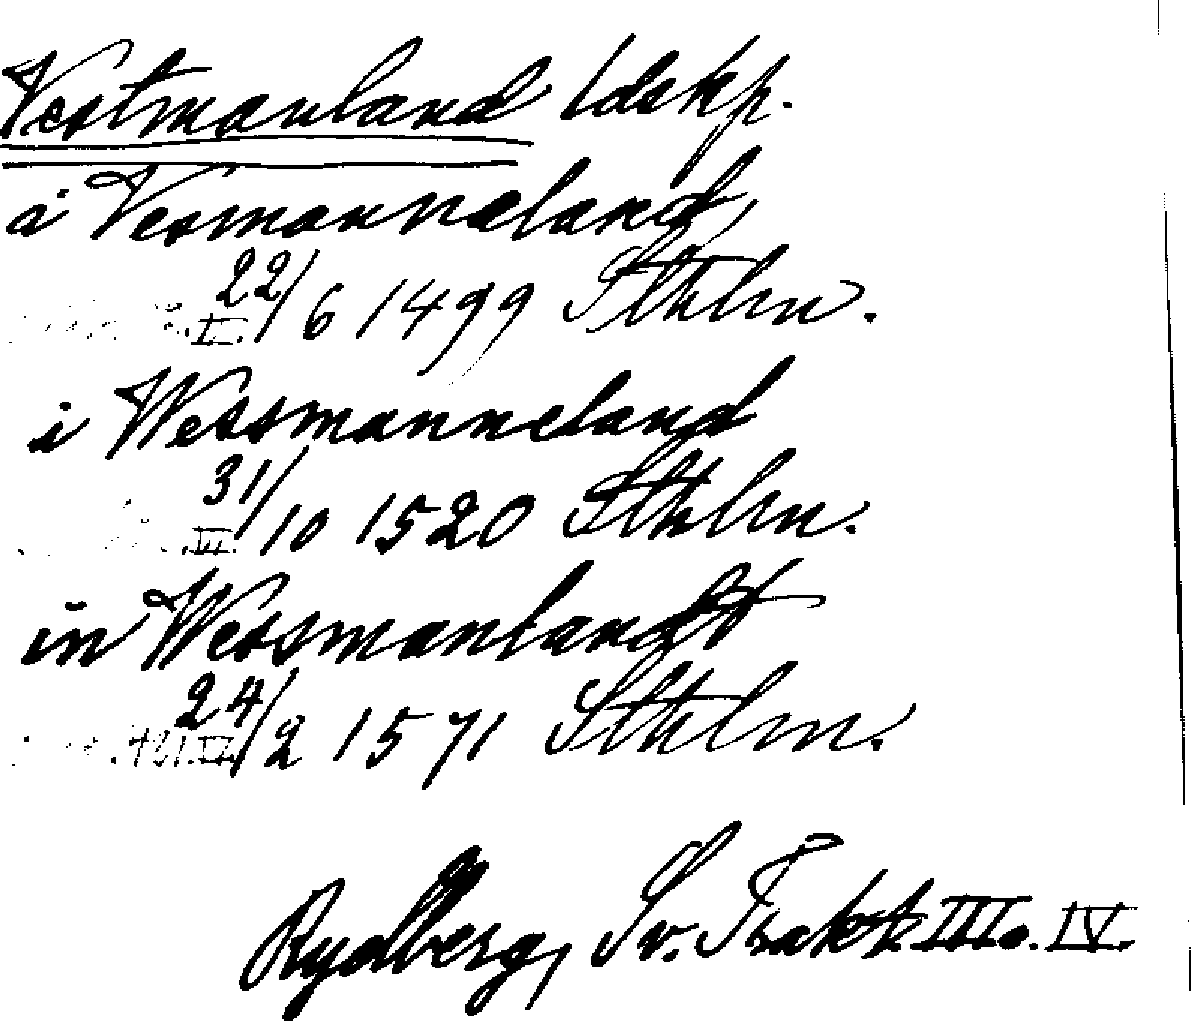 Vestmanland ldskp.
å Vesmanneland,
22/6 1499 Sthlm.
III.
i Wessmanneland
31/10 1520 Sthlm.
III.
in Wessmanlandt
24/2 1571 Sthlm.
Rydberg, Sv. Trakt. III o. IV.